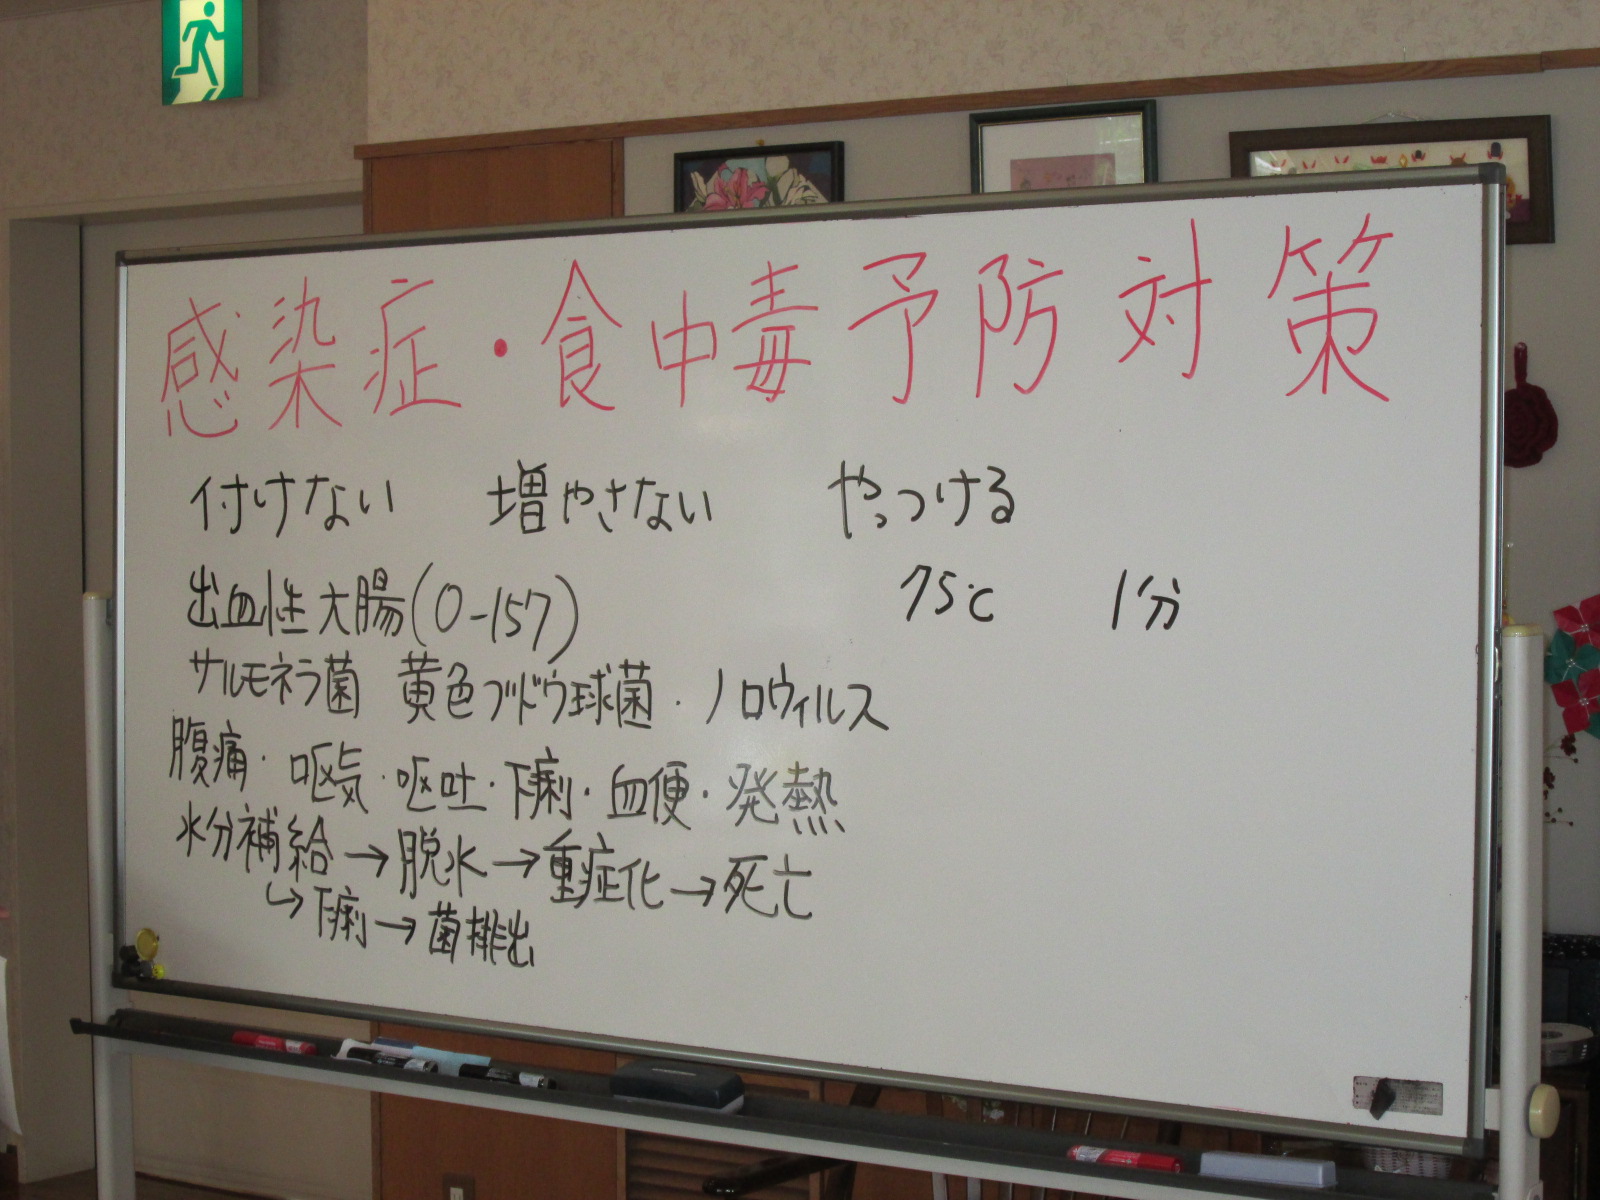 感染症・食中毒予防対策
付けない 増やさない やっつける
出血性大腸(O-157) 75℃ 1分
サルモネラ菌 黄色ブドウ球菌・ノロウィルス
腹痛・嘔気・嘔吐・下痢・血便・発熱
水分補給→脱水→重症化→死亡
↳下痢→菌排出